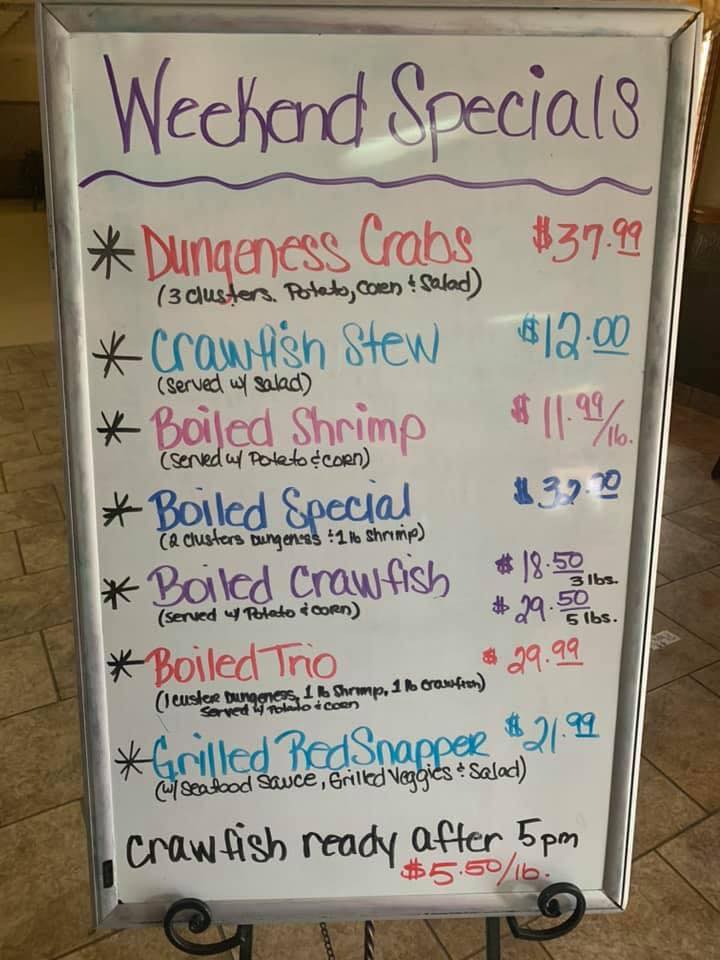 Weekend Specials
* Dungeness Crabs $37.99
(3 clusters. Potato, Corn & Salad)
* Crawfish Stew $12.00
(Served w/ Salad)
* Boiled Shrimp $11.99/lb.
(Served w/ Potato & Corn)
* Boiled Special
(2 Clusters Dungeness & 1 lb Shrimp)
* Boiled Crawfish $18.50 3 lbs.
(Served w/ Potato & Corn) $29.50 5 lbs.
* Boiled Trio $29.99
(1 Custer Dungeness, 1 lb Shrimp, 1 lb Crawfish)
Served w/ Potato & Corn
* Grilled Red Snapper $21.99
(w/ Seafood Sauce, Grilled Veggies & Salad)
Crawfish ready after 5pm
$5.50/lb.